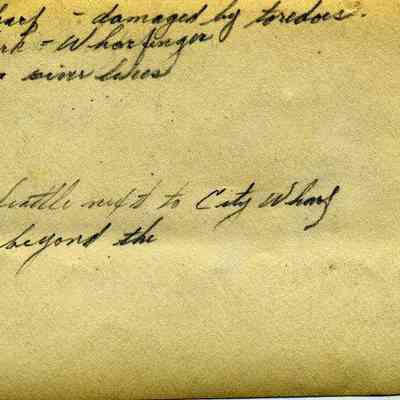 harf - damaged by toredoes.
rk - Wharfinger
river lines
Seattle next to City Wharf
beyond the